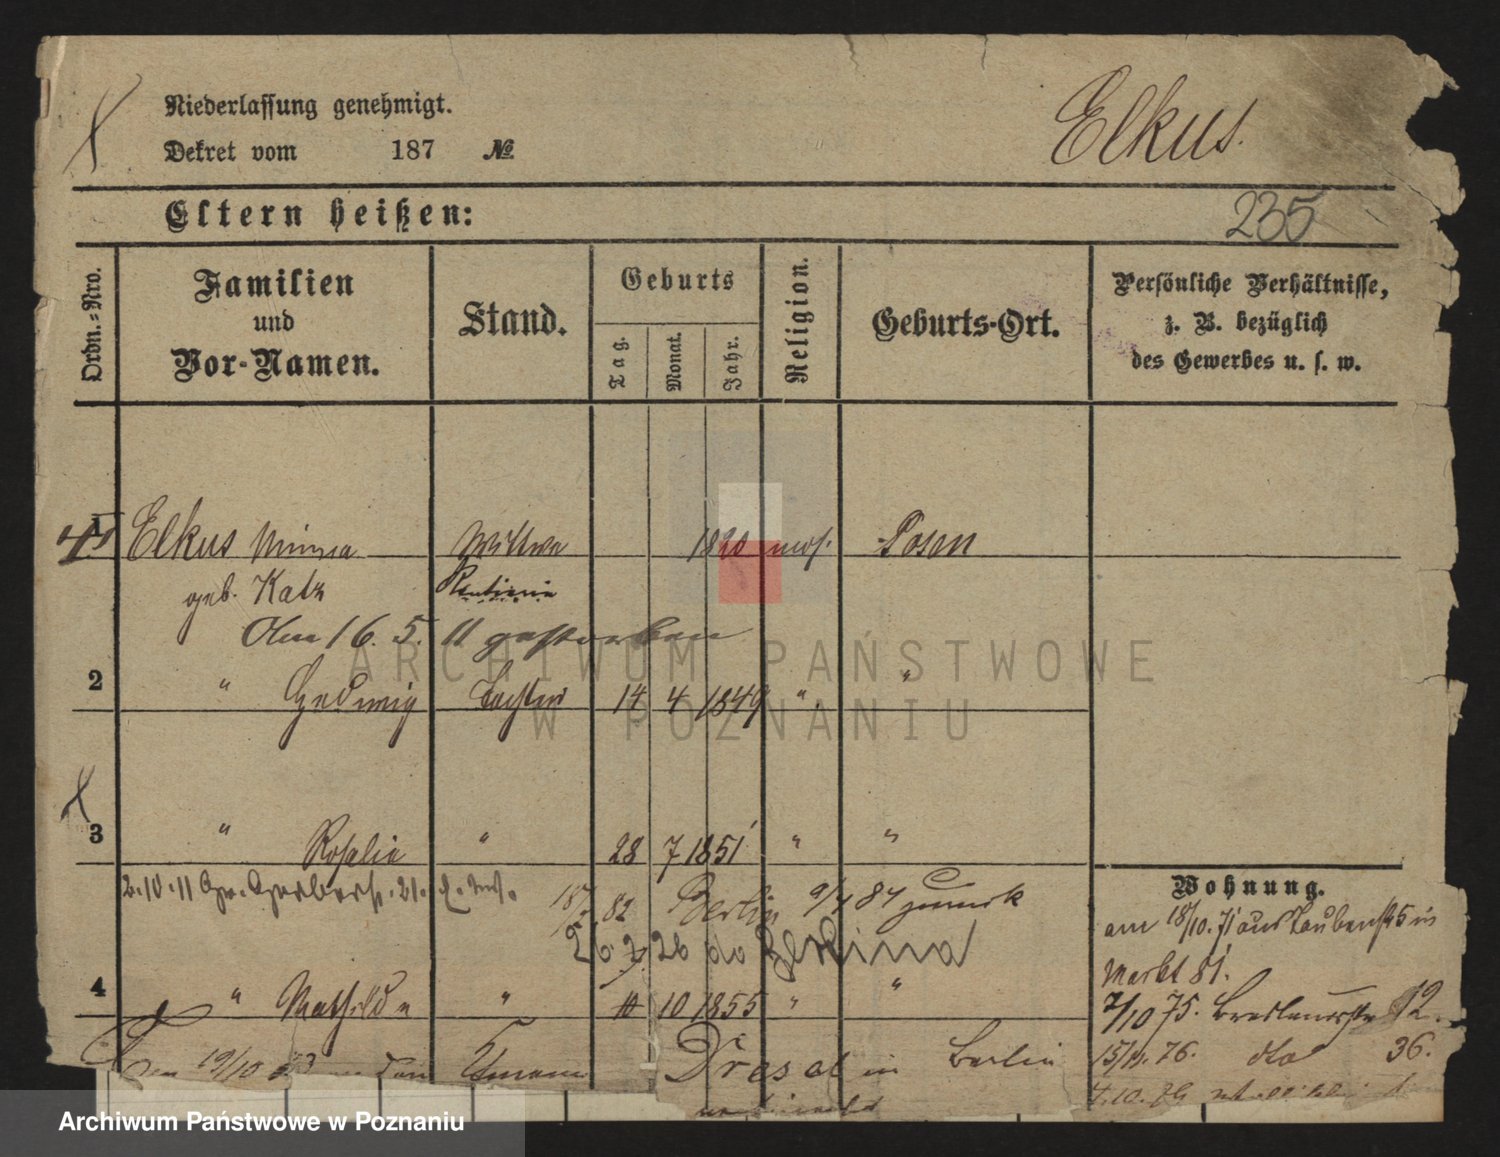 Niederlassung genehmigt.
Dekret vom 187 №
Elkus.
Eltern heißen:
235
Ordn.-Nro.
Familien
und
Vor-Namen.
Stand.
Geburts
Tag.
Monat.
Jahr.
Religion.
Geburts-Ort.
Persönliche Verhältnisse,
z. B. bezüglich
des Gewerbes u. s. w.
1 Elkus Minna Wittwe 1820 mos. Posen
geb. Katz Rentiere
Am 16. 5. 11 gestorben
ARCHIWUM PAŃSTWOWE
W POZNANIU
2 " Hedwig Tochter 14 4 1849 " "
3 " Rosalie " 28 7 1851 " "
2.10.11 Gr. Gerberstr. 21.
82 Berlin 9/4 84 zurück
26 do Berlina
4 " Mathilde " 10 1855 " "
19/10 in Berlin
Wohnung.
am 18/10. 71 aus Taubenstr 5 in
Markt 81.
7/10 75. Breslauerstr 12.
15/11. 76. dto 36.
Archiwum Państwowe w Poznaniu